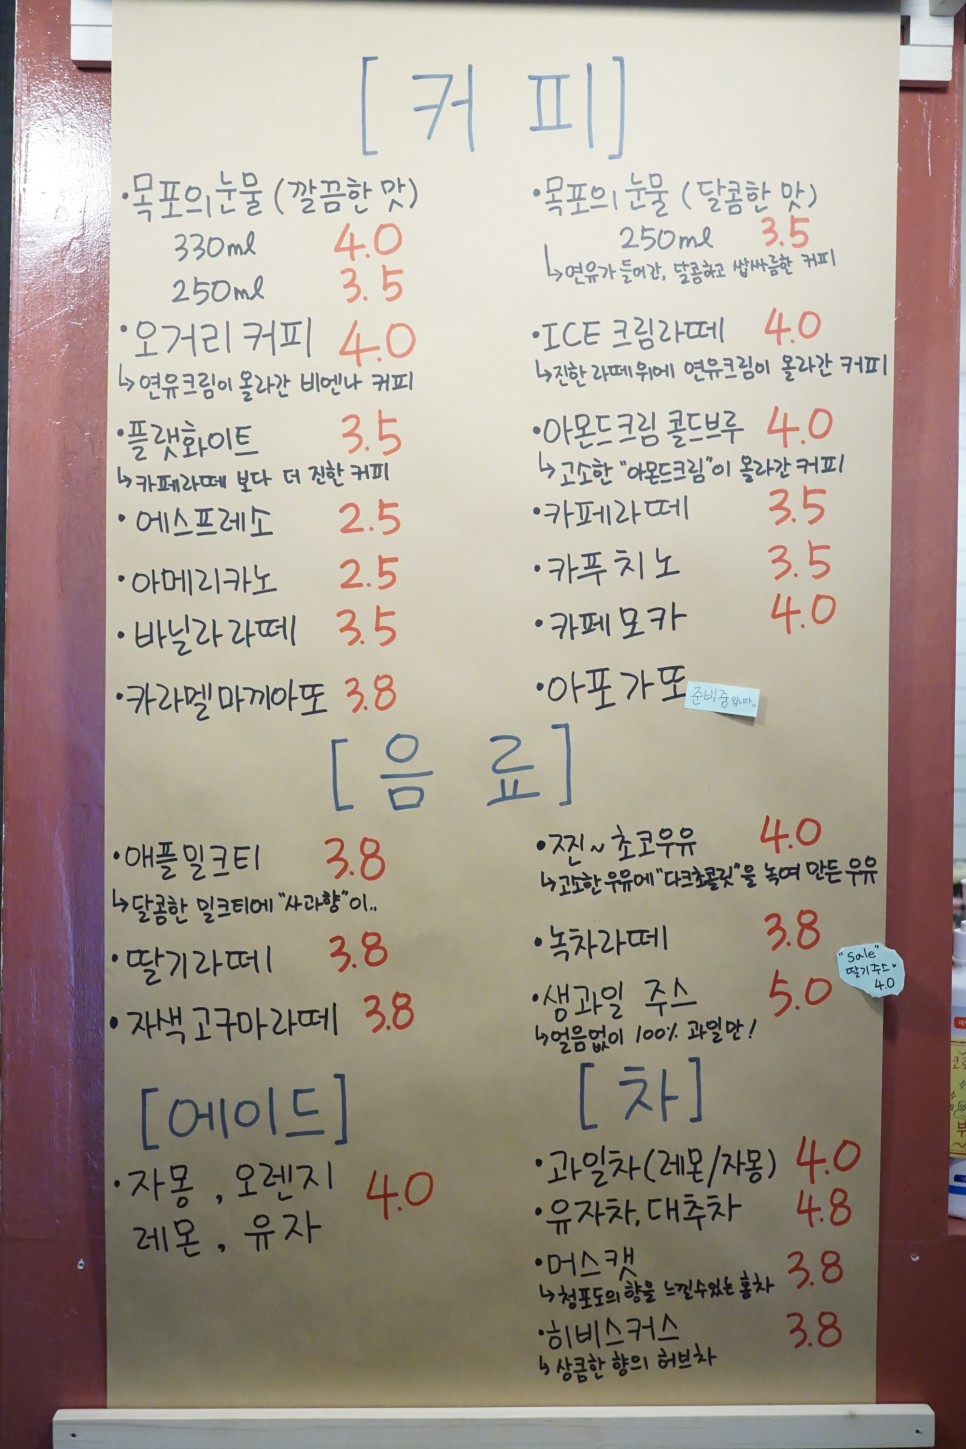 [커 피]
·목포의 눈물 (깔끔한 맛)
330ml 4.0
250ml 3.5
·오거리 커피 4.0
↳연유크림이 올라간 비엔나 커피
·플랫화이트 3.5
↳카페라떼 보다 더 진한 커피
·에스프레소 2.5
·아메리카노 2.5
·바닐라 라떼 3.5
·카라멜마끼아또 3.8
·목포의 눈물 (달콤한 맛)
250ml 3.5
↳연유가 들어간, 달콤하고 쌉싸름한 커피
·ICE 크림라떼 4.0
↳진한 라떼 위에 연유크림이 올라간 커피
·아몬드크림 콜드브루 4.0
↳고소한 "아몬드크림"이 올라간 커피
·카페라떼 3.5
·카푸치노 3.5
·카페모카 4.0
·아포가또
준비중입니다..
[음 료]
·애플밀크티 3.8
↳달콤한 밀크티에 "사과향"이..
·딸기라떼 3.8
·자색고구마라떼 3.8
·찐~초코우유 4.0
↳고소한 우유에 "다크초콜릿"을 녹여 만든 우유
·녹차라떼 3.8
·생과일 주스 5.0
↳얼음없이 100% 과일만!
"Sale"
딸기주스
4.0
[에이드]
·자몽, 오렌지 4.0
레몬, 유자
[차]
·과일차(레몬/자몽) 4.0
·유자차, 대추차 4.8
·머스캣 3.8
↳청포도의 향을 느낄수있는 홍차
·히비스커스 3.8
↳상큼한 향의 허브차